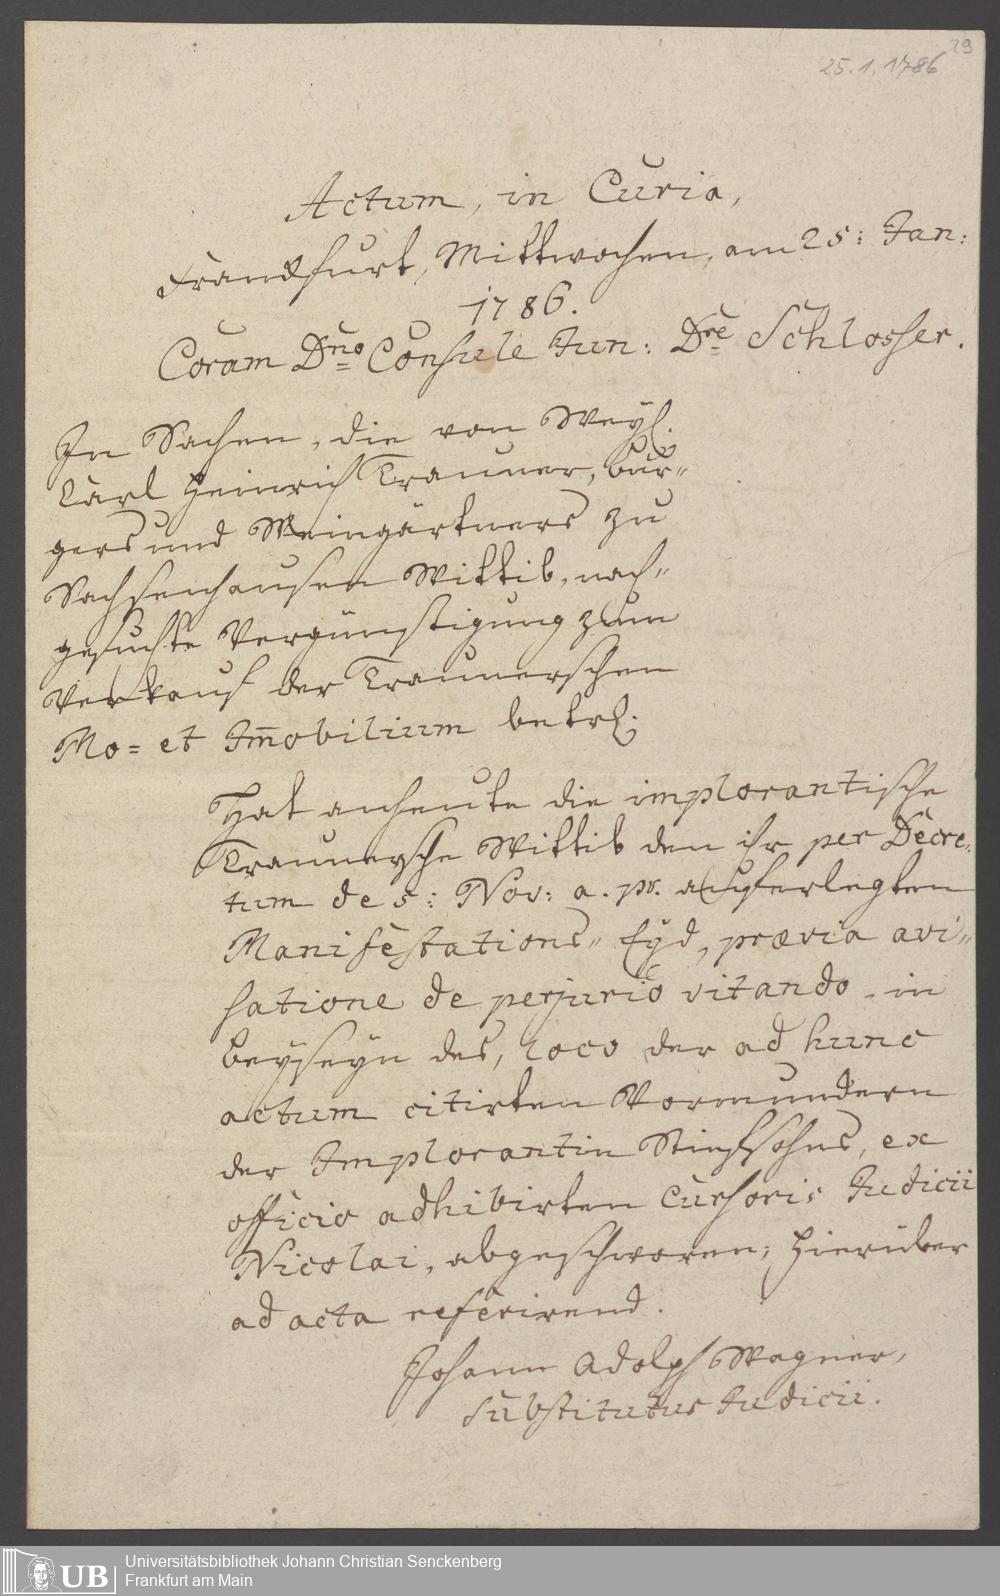 29
25.1.1786
Actum, in Curia,
Franckfurt, Mittwochen, am 25: Jan:
1786.
Coram Dno Consule Jun: Dre Schlosser.
In Sachen, die von Weyl.
Carl Heinrich Trauner, bur„
gers und Weingärtners zu
Sachsenhausen Wittib, nach„
gesuchte Vergünstigung zum
Verkauf der Traunerschen
Mo= et Im̄obilium betrl.
Hat anheute die implorantische
Traunersche Wittib den ihr per Decre„
tum de 5: Nov: a. pr. auferlegten
Manifestations„ Eyd, prævia avi„
satione de perjurio vitando, in
beyseyn des, loco der ad hunc
actum citirten Vormundern
der Implorantin Stiefsohns, ex
officio adhibirten Cursoris Judicii
Nicolai, abgeschworen; hierüber
ad acta referirend.
Johann Adolph Wagner,
Substitutus Judicii.
UB
Universitätsbibliothek Johann Christian Senckenberg
Frankfurt am Main